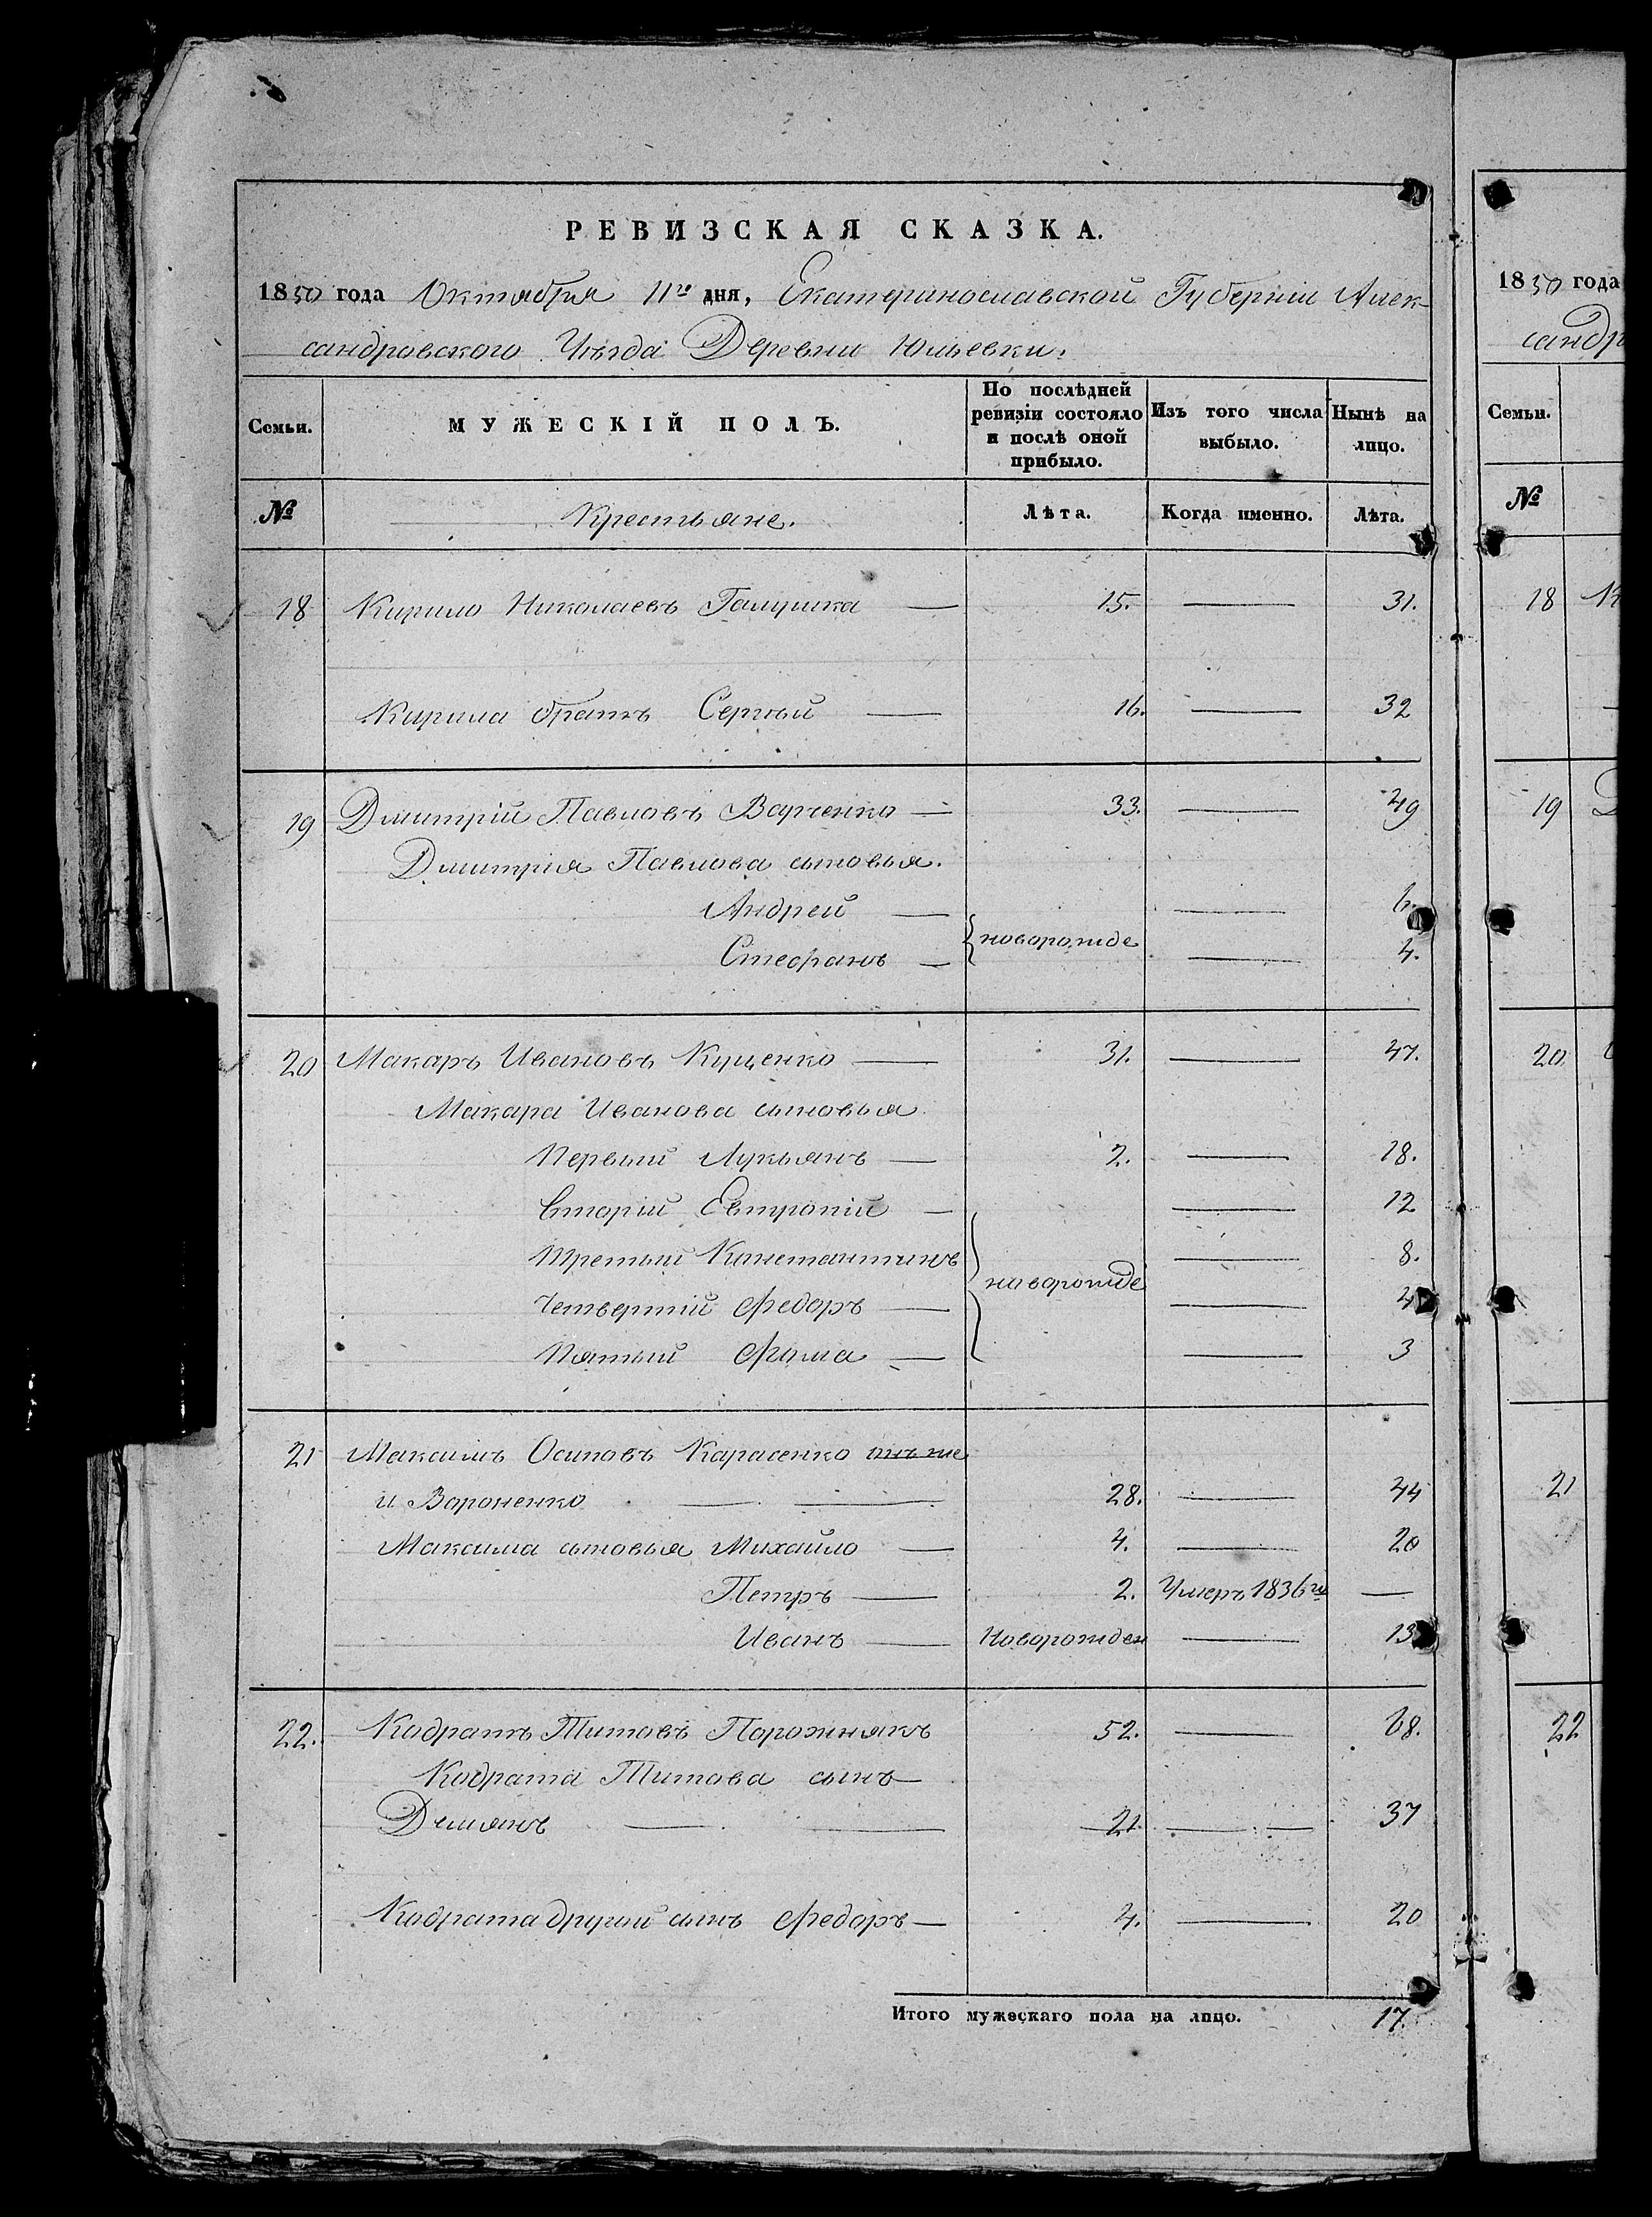 РЕВИЗСКАЯ СКАЗКА.
1850 года Октября 11го дня, Екатеринославской Губерніи Алек-
сандровского Уѣзда Деревни Юльевки.
Семьи. МУЖЕСКІЙ ПОЛЪ. По послѣдней ревизіи состояло и послѣ оной прибыло. Изъ того числа выбыло. Нынѣ на лицо.
№ Крестьяне. Лѣта. Когда именно. Лѣта.
18 Кирило Николаевъ Галушка — 15. — 31.
Кирила братъ Сергѣй — 16. — 32
19 Дмитрій Павловъ Варченко — 33. — 49
Дмитрія Павлова сыновья.
Андрей — новорожде — 6.
Стефанъ — — 4.
20 Макаръ Ивановъ Куценко — 31. — 47.
Макара Иванова сыновья
Первый Лукьянъ — 2. — 18.
Вторій Евтропій — — 12
Третьий Констан­тинъ новорожде — 8.
Четвертій Федоръ — — 4
Пятый Фома — — 3
21 Максимъ Осиповъ Карасенко онъ же
и Вороненко — — 28. — 44
Максима сыновья Михайло — 4. — 20
Петръ — 2. Умеръ 1836го —
Иванъ — Новорожден — 13
22. Кодратъ Титовъ Порожнякъ 52. — 68.
Кодрата Титова сынъ
Демянъ — — 21. — 37
Кодрата другий сынъ Федоръ — 4. — 20
Итого мужескаго пола на лицо. 17.
1850 года
сандр
Семьи.
№
18
19
20
21
22